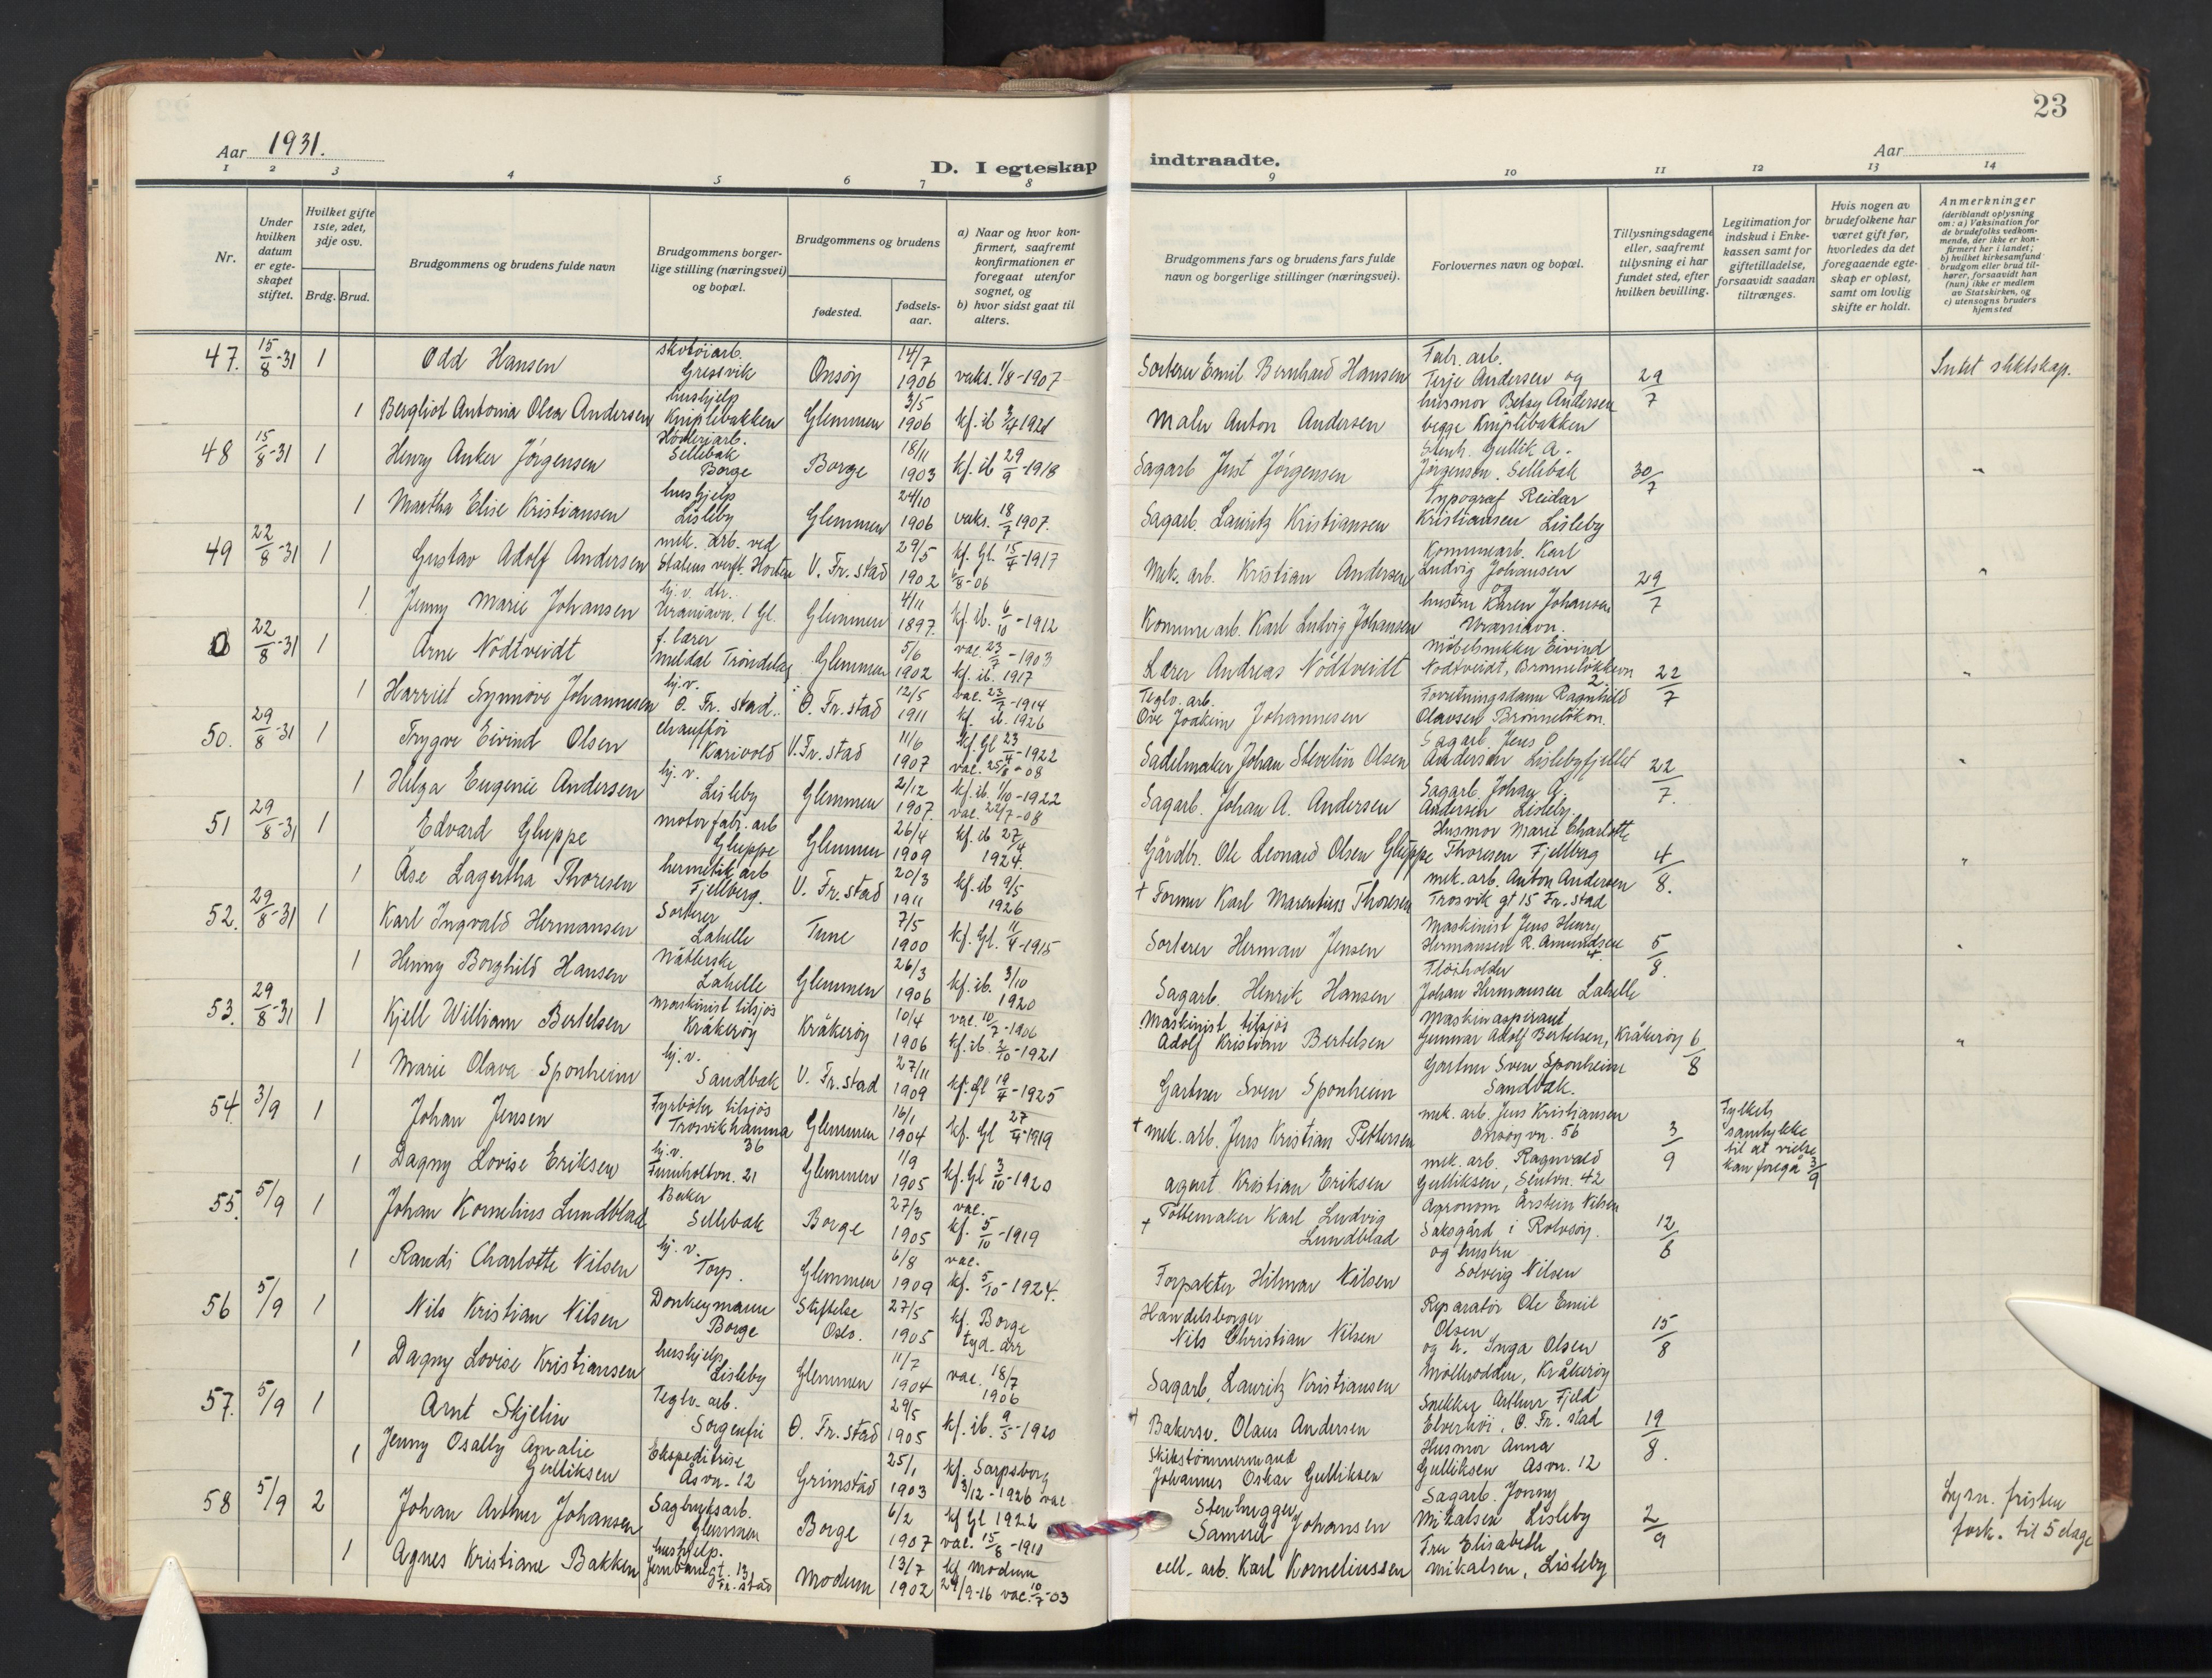 23
Aar 1931.
D. I egteskap indtraadte.
Aar
1 2 3 4 5 6 7 8 9 10 11 12 13 14
Nr.
Under hvilken datum er egteskapet stiftet.
Hvilket gifte 1ste, 2det, 3dje osv.
Brdg. Brud.
Brudgommens og brudens fulde navn
Brudgommens borgerlige stilling (næringsvei) og bopæl.
Brudgommens og brudens
fødested.
fødselsaar.
a) Naar og hvor konfirmert, saafremt konfirmationen er foregaat utenfor sognet, og
b) hvor sidst gaat til alters.
Brudgommens fars og brudens fars fulde navn og borgerlige stillinger (næringsvei).
Forlovernes navn og bopæl.
Tillysningsdagene eller, saafremt tillysning ei har fundet sted, efter hvilken bevilling.
Legitimation for indskud i Enkekassen samt for giftetilladelse, forsaavidt saadan tiltrænges.
Hvis nogen av brudefolkene har været gift før, hvorledes da det foregaaende egteskap er opløst, samt om lovlig skifte er holdt.
Anmerkninger (deriblandt oplysning om: a) Vaksination for de brudefolks vedkommende, der ikke er konfirmert her i landet; b) hvilket kirkesamfund brudgom eller brud tilhører, forsaavidt han (hun) ikke er medlem av Statskirken, og c) utensogns bruders hjemsted
47. 15/8-31 1 Odd Hansen skotøiarb. Gressvik Onsøy 14/7 1906 vaks. 1/8-1907 Sorterer Emil Bernhard Hansen Fabr. arb. Terje Andersen og 29/7 Intet slektskap.
1 Bergliot Antonia Olea Andersen hushjelp Kniplebakken Glemmen 3/5 1906 kf. ib 3/4 1921 Maler Anton Andersen husmor Betsy Andersen begge Kniplebakken
48 15/8-31 1 Henry Anker Jörgensen Sellebak Borge Borge 18/11 1903 kf. ib 29/9-1918 Sagarb Just Jörgensen Stenh. Gullik A. Jörgensen. Sellebak 30/7 "
1 Martha Elise Kristiansen hushjelp Lisleby Glemmen 24/10 1906 vaks. 18/7 1907. Sagarb. Lauritz Kristiansen Typograf Reidar Kristiansen Lisleby
49 22/8-31 1 Gustav Adolf Andersen mek. arb. ved Statens verft. Horten V. Fr. stad 29/5 1902 kf. Gl. 15/4-1917 Mek. arb. Kristian Andersen Kommunearb. Karl Ludvig Johansen og 29/7 "
1 Jenny Marie Johansen hj. v. dtr. Uraniavn. 1 Gl. Glemmen 4/11 1897. kf. ib. 6/10-1912 Kommune arb. Karl Ludvig Johansen hustru Karen Johansen Uraniavn.
22/8-31 1 Arne Nödtveidt f. lærer Meldal Tröndelag Glemmen 5/6 1902 vac. 23/7-1903 kf. ib. 1917 Lærer Andreas Nödtveidt möbelsnekker Eivind Nödtveidt, Brønneløkkevn 2. 22/7 "
1 Harriet Synnöve Johannesen hj. v. Ö. Fr. stad. Ö. Fr. stad 12/5 1911 kf. ib. 1926 Teglv. arb. Ove Joakim Johannesen Forretningsdame Ragnhild Olavsen
50. 29/8-31 1 Trygve Eivind Olsen chauffør Karivold V. Fr. stad 11/6 1907 kf. Gl 23/4-1922 vac. 25/8-08 Sadelmaker Johan Steselin Olsen Sagarb. Jens O Andersen Lislebyfjellet 22/7. "
1 Helga Eugenie Andersen hj. v. Lisleby Glemmen 21/12 1907. kf. ib. 1/10-1922 vac. 22/7-08 Sagarb. Johan A. Andersen Sagarb. Johan A. Andersen Lisleby
51 29/8-31 1 Edvard Gluppe motorfabr. arb Gluppe Glemmen 26/4 1909 kf. ib 27/4 1924. Gårdbr. Ole Leonard Olsen Gluppe Husmor Marie Charlotte Thoresen Fjellberg 4/8. "
1 Åse Lagertha Thoresen hermetik arb Fjellberg. V. Fr. stad 20/3 1911 kf. ib 9/5 1926 + Former Karl Marentius Thoresen mek. arb. Anton Andersen Trosvik gt 15 Fr. stad
52. 29/8-31 1 Karl Ingvald Hermansen Sorterer Lahelle Tune 7/5 1900 kf. Gl. 11/4-1915 Sorterer Herman Jensen Maskinist Jens Henry Hermansen R. Amundsen 5/8. "
1 Henny Borghild Hansen Lahelle Glemmen 26/3 1906 kf. ib. 3/10 1920 Sagarb. Henrik Hansen Johan Hermansen Lahelle
53. 29/8-31 1 Kjell William Bertelsen maskinist tilsjøs Kråkerøy Kråkerøy 10/4 1906 vac. 10/7-1906 kf. ib. 2/10-1921 Maskinist tilsjøs Adolf Kristian Bertelsen Maskinaspirant Gunnar Adolf Bertelsen, Kråkerøy 6/8 "
1 Marie Olava Sponheim hj. v. Sandbæk V. Fr. stad 27/11 1909 kf. Gl 19/4-1925 Gartner Sven Sponheim Gartner Sven Sponheim Sandbæk.
54. 3/9 1 Johan Jensen Fyrbøter tilsjøs Trosvikhamna 36 Glemmen 16/1 1904 kf. Gl 27/4-1919 + mek. arb. Jens Kristian Pettersen mek. arb. Jens Kristiansen Onsøyvn. 56 3/9 Fylkets samtykke til at vielse kan foregå 3/9
1 Dagny Lovise Eriksen hj. v. Furuholtvn. 21 Glemmen 1/9 1905 kf. Gl 3/10-1920 agent Kristian Eriksen mek. arb. Ragnvald Gulliksen, 42
55. 5/9 1 Johan Kornelius Lundblad Baker Sellebak Borge 27/3 1905 vac. kf. 5/10-1919 + Pottemaker Karl Ludvig Lundblad Agronom Årstein Nilsen Saksgård i Rolvsøy. 12/6
1 Randi Charlotte Nilsen hj. v. Torp. Glemmen 6/8 1909 vac. kf. 5/10-1924. Forpakter Hilmar Nilsen og hustru Solveig Nilsen
56 5/9 1 Nils Kristian Nilsen Donkeymann Borge Stiftelse Oslo. 27/5 1905 kf. Borge Handelsborger Nils Christian Nilsen Reparatör Ole Emil Olsen 15/8
1 Dagny Lovise Kristiansen hushjelp Lisleby Glemmen 11/7 1904 vac. 18/7 1906 Sagarb. Lauritz Kristiansen og h. Inga Olsen Mölleodden, Kråkerøy
57. 5/9 1 Arnt Skjelin Teglv. arb. Sorgenfri Ö. Fr. stad 29/5 1905 kf. ib. 9/5-1920 + Bakersv. Olaus Andersen Snekker Arthur Fjeld Elverhöi, Ö. Fr. stad 19/8.
1 Jenny Osally Amalie Gulliksen Ekspeditrise Åsvn. 12 Grimstad 25/1 1903 kf. Sarpsborg 3/12-1926 vac Skibstömmermand Johannes Oskar Gulliksen Husmor Anna Gulliksen Åsvn. 12
58 5/9 2 Johan Arthur Johansen Sagbruksarb. Glemmen Borge 6/2 1907 kf Gl 1922 vac. 15/8-1911 Stenhugger Samuel Johansen Sagarb. Jonny Mikalsen Lisleby 2/9 Lysn. fristen fork. til 5 dage
1 Agnes Kristiane Bakken hushjelp. Jernbanegt. 13 Fr. stad Modum 13/7 1902 kf. Modum 24/9-16 vac. 10/7-03 cell. arb. Karl Korneliussen Fru Elisabeth Mikalsen, Lisleby